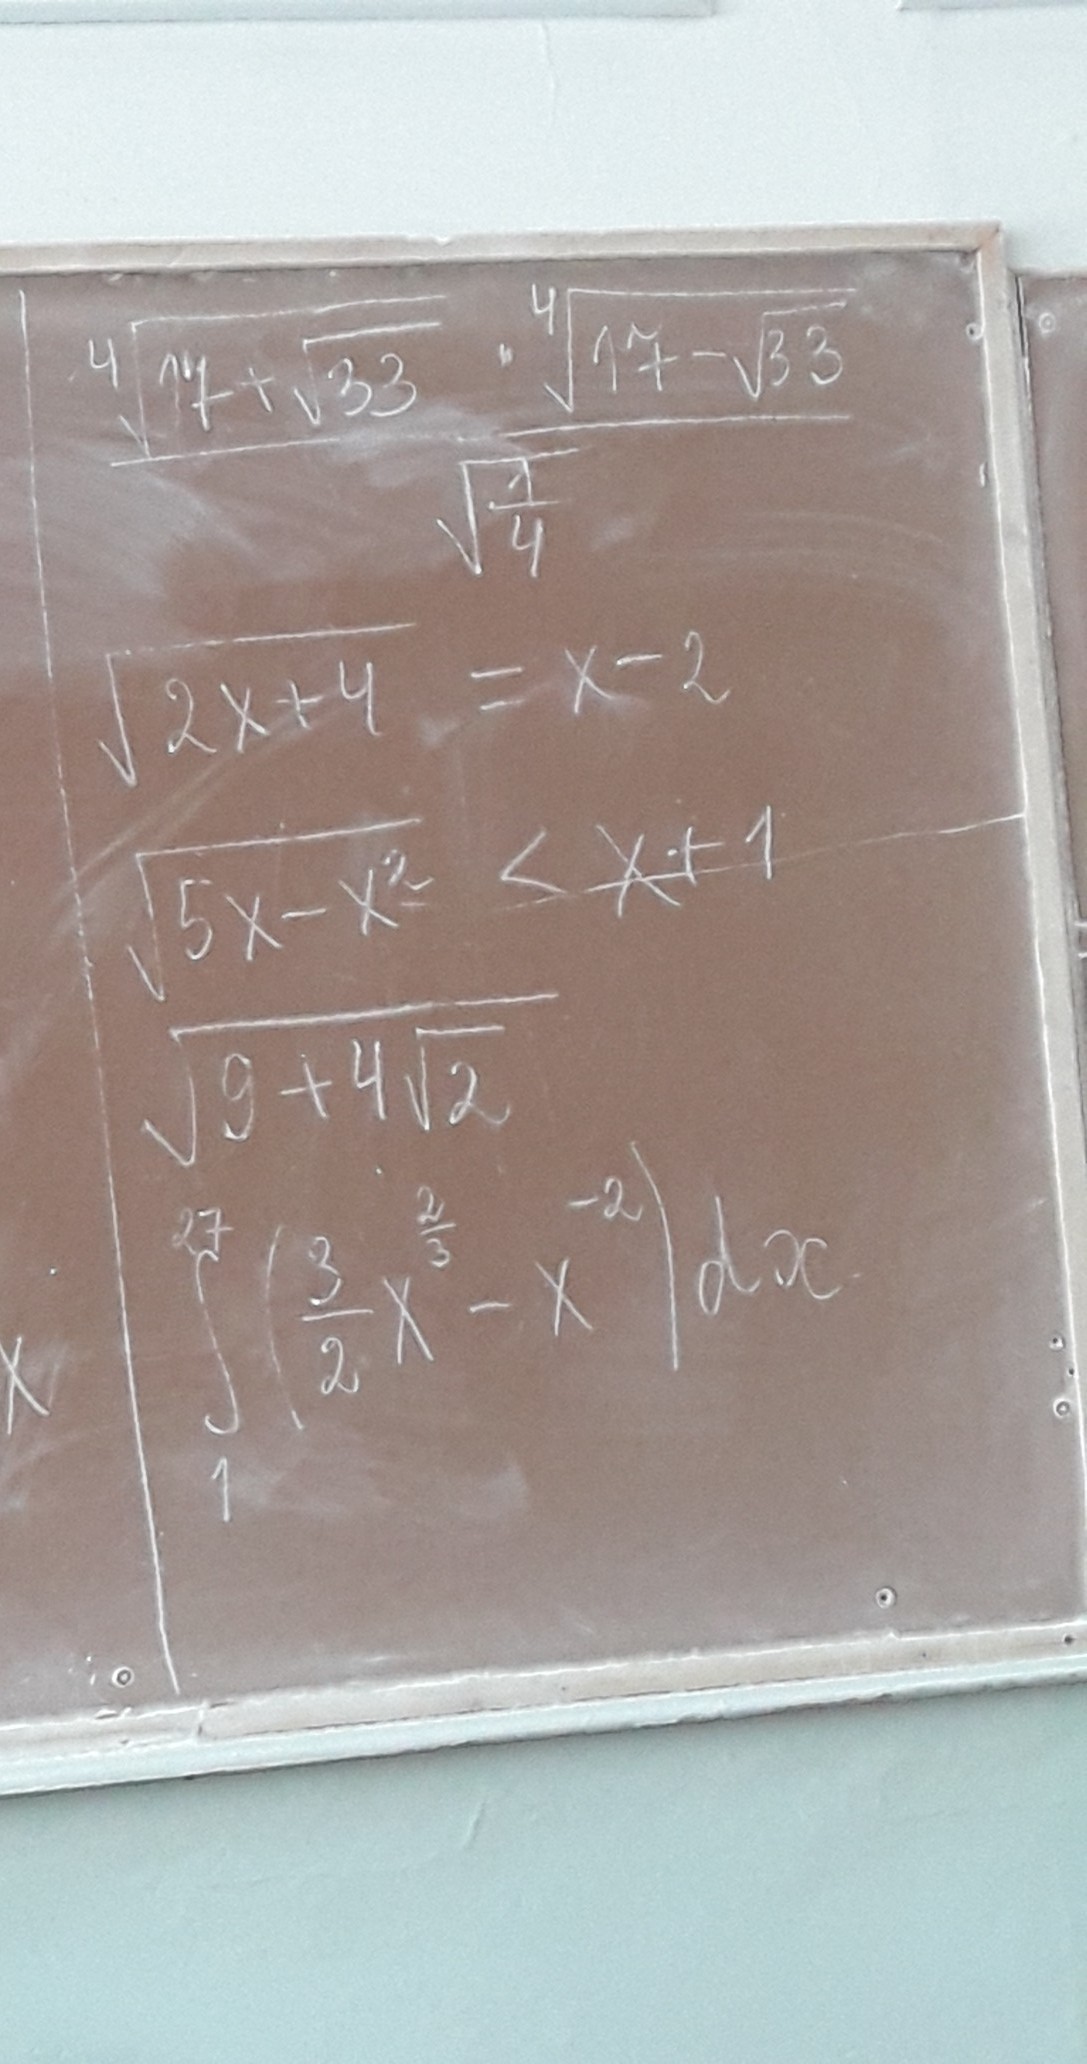 \frac{\sqrt[4]{17+\sqrt{33}} \cdot \sqrt[4]{17-\sqrt{33}}}{\sqrt{\frac{1}{4}}}
\sqrt{2x+4} = x-2
\sqrt{5x-x^2} < x+1
\sqrt{9+4\sqrt{2}}
\int_1^{27} \left(\frac{3}{2}x^{\frac{2}{3}} - x^{-2}\right) dx
x